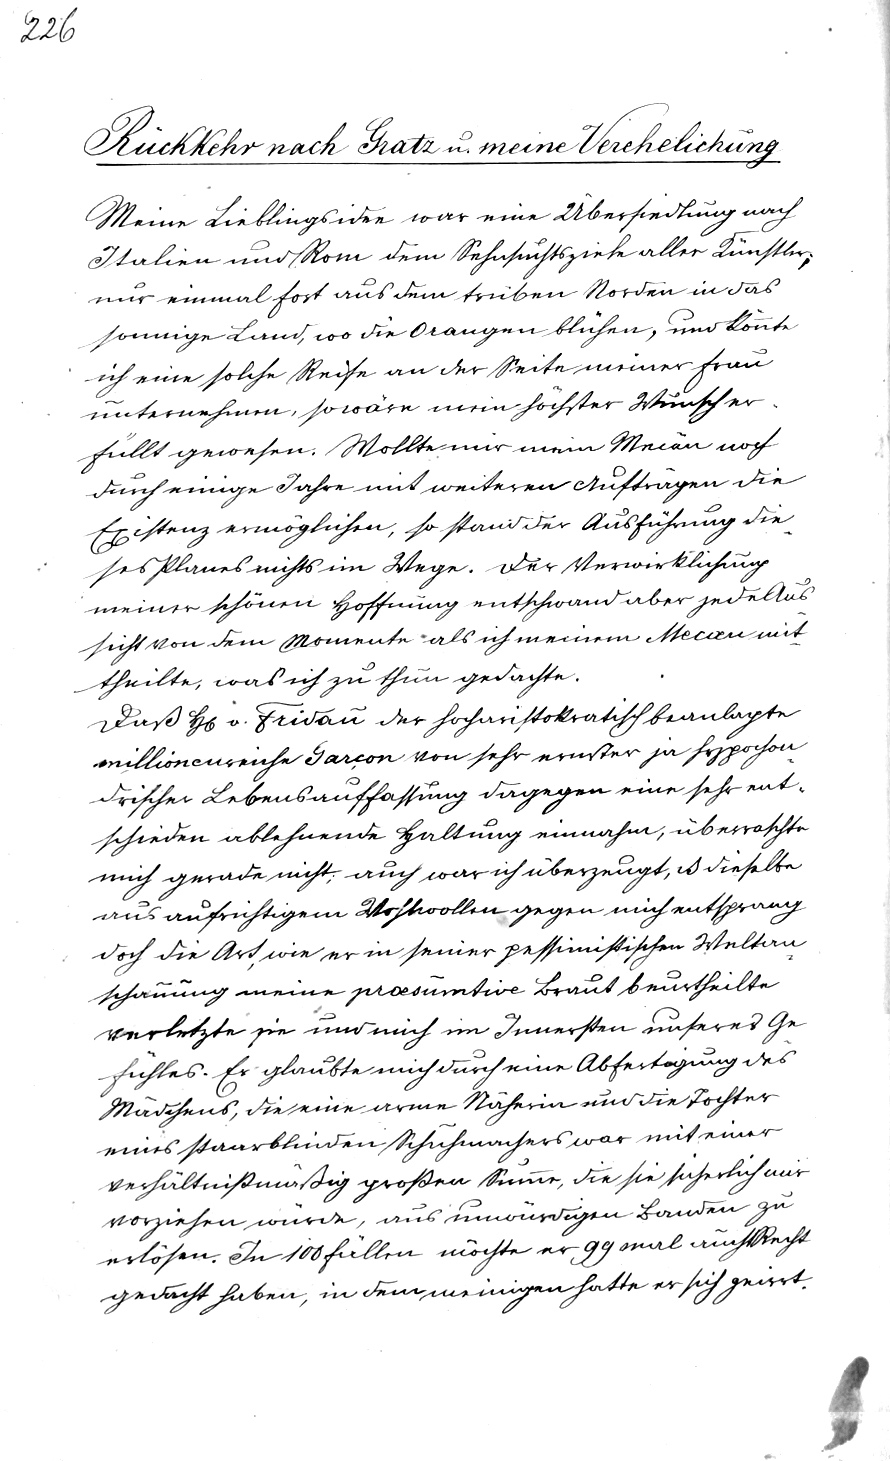 226
Rückkehr nach Gratz u. meine Verehelichung
Meine Lieblingsidee war eine Übersiedlung nach
Italien und Rom dem Sehnsuchtsziele aller Künstler;
nur einmal fort aus dem trüben Norden in das
sonnige Land, wo die Orangen blühen, und könnte
ich eine solche Reise an der Seite meiner Frau
unternehmen, so wäre mein höchster Wunsch er-
füllt gewesen. Wollte mir mein Mecän noch
durch einige Jahre mit weiteren Aufträgen die
Existenz ermöglichen, so stand der Ausführung die-
ses Planes nichts im Wege. Der Verwirklichung
meiner schönen Hoffnung entschwand aber jede Aus
sicht von dem Momente als ich meinem Mecæn mit-
theilte, was ich zu thun gedachte.
Daß H v. Fridau der hocharistokratisch beanlagte
millionenreiche Garçon von sehr ernster ja hypochon-
drischer Lebensauffassung dagegen eine sehr ent-
schieden ablehnende Haltung einnahm, überraschte
mich gerade nicht; auch war ich überzeugt, dieselbe
aus aufrichtigem Wohlwollen gegen mich entsprang
doch die Art, wie er in seiner pessimistischen Weltan-
schauung meine præsumtive Braut beurtheilte
verletzte sie und mich im Innersten unseres Ge
fühles. Er glaubte mich durch eine Abfertigung des
Mädchens, die eine arme Näherin und die Tochter
eines staarblinden Schuhmachers war mit einer
verhältnißmäßig großen Summe, die sie sicherlich mir
vorziehen würde, aus unwürdigen Banden zu
erlösen. In 100 Fällen möchte er 99 mal auch Recht
gedacht haben, in dem meinigen hatte er sich geirrt.